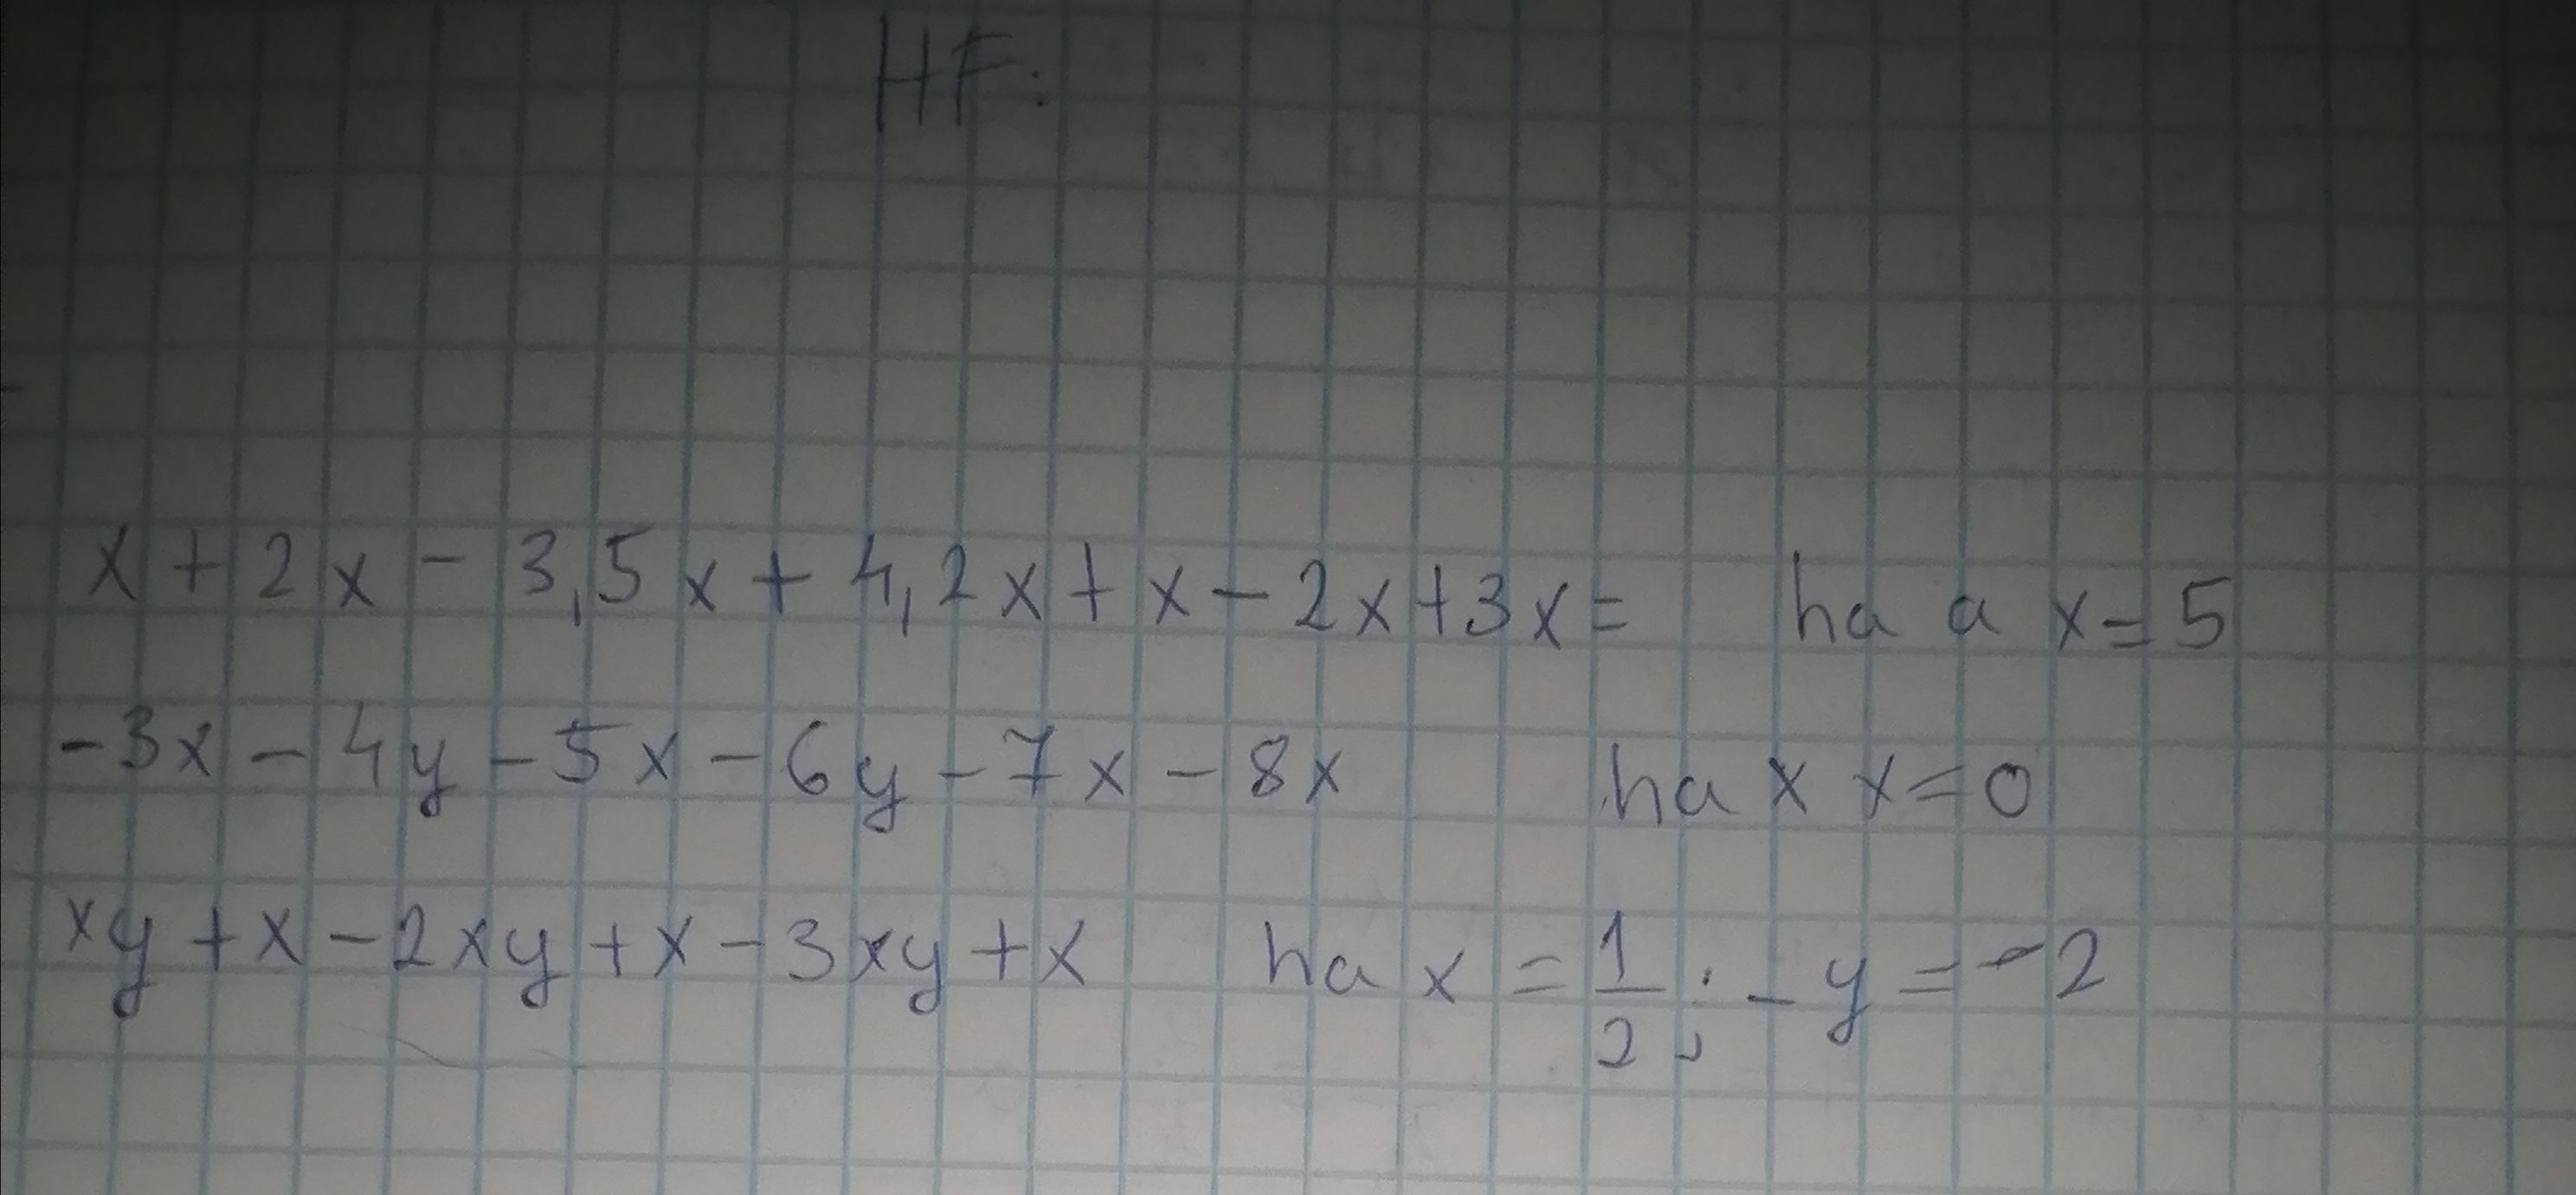 HF:
x + 2x - 3,5x + 4,2x + x - 2x + 3x = ha a x = 5
-3x - 4y - 5x - 6y - 7x - 8x ha x x = 0
xy + x - 2xy + x - 3xy + x ha x = 1/2 ; - y = -2